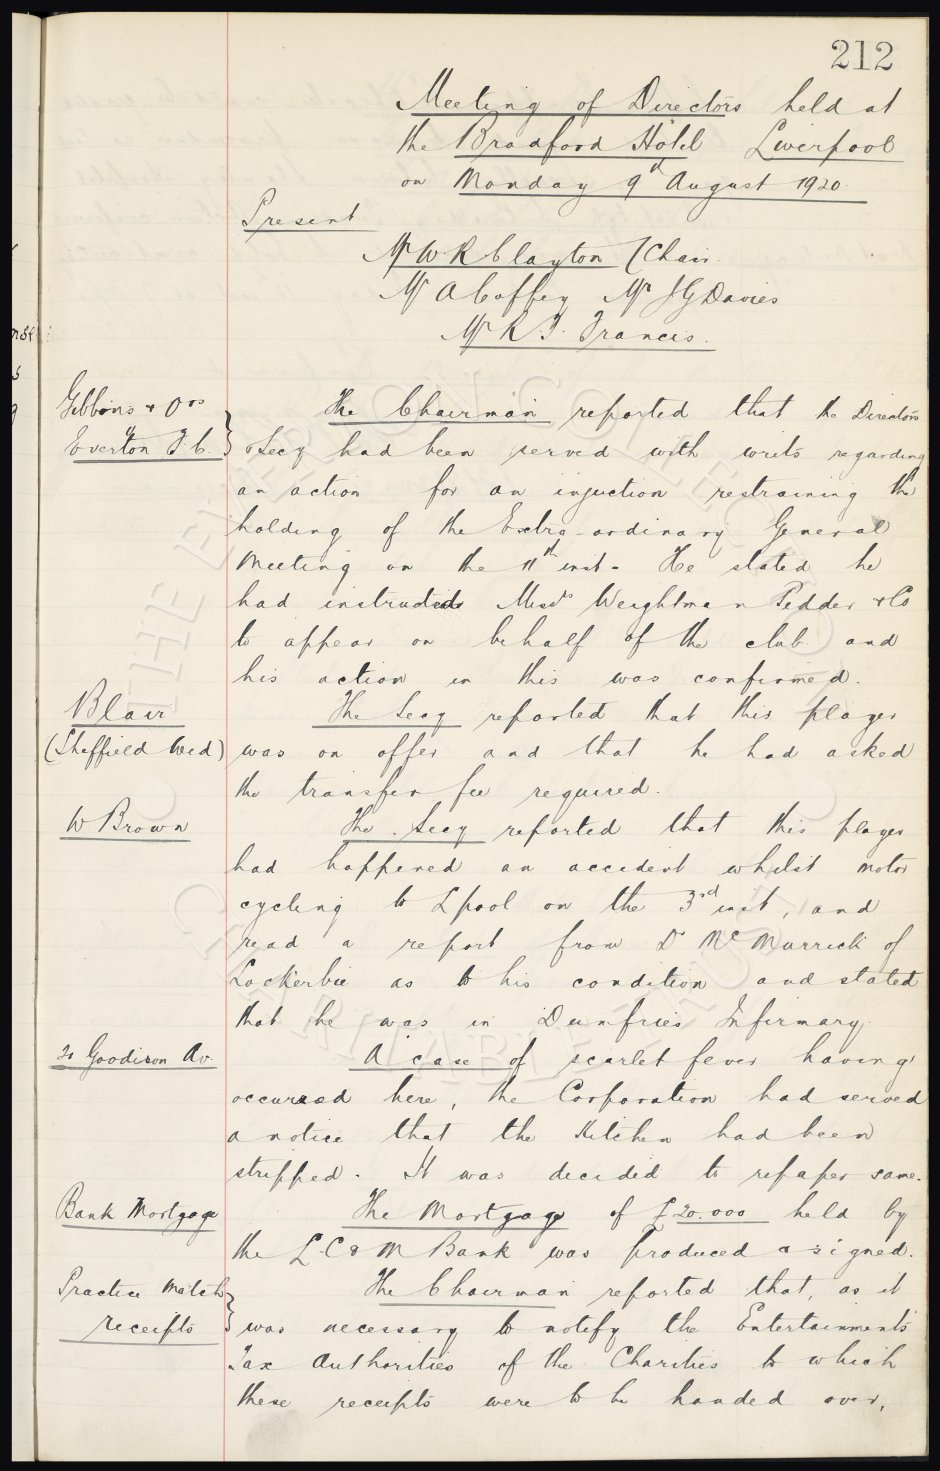 212
Meeting of Directors held at
the Bradford Hotel Liverpool
on Monday 9th August 1920.
Present
Mr W. R. Clayton (Chair.
Mr A Coffey Mr J G Davies
Mr R. T. Francis.
Gibbins & Ors
v
Everton F.C. }
The Chairman reported that the Directors
& Secy had been served with writs regarding
an action for an injuction restraining the
holding of the Extra-ordinary General
Meeting on the 11th inst. He stated he
had instructed Messrs Weightman Pedder & Co
to appear on behalf of the club and
his action in this was confirmed.
Blair
(Sheffield Wed)
The Secy reported that this player
was on offer and that he had asked
the transfer fee required.
W Brown
The Secy reported that this player
had happened an accident whilst motor
cycling to Lpool on the 3rd inst, and
read a report from Dr Mc Murrich of
Lockerbie as to his condition and stated
that he was in Dumfries Infirmary.
Goodison Av.
A case of scarlet fever having
occurred here, the Corporation had served
a notice that the Kitchen had been
stripped. It was decided to repaper same.
Bank Mortgage
The Mortgage of £20.000 held by
the L.C & M Bank was produced & signed.
Practice Match
receipts }
The Chairman reported that, as it
was necessary to notify the Entertainments
Tax Authorities of the Charities to which
these receipts were to be handed over,
THE EVERTON COLLECTION
CHARITABLE TRUST